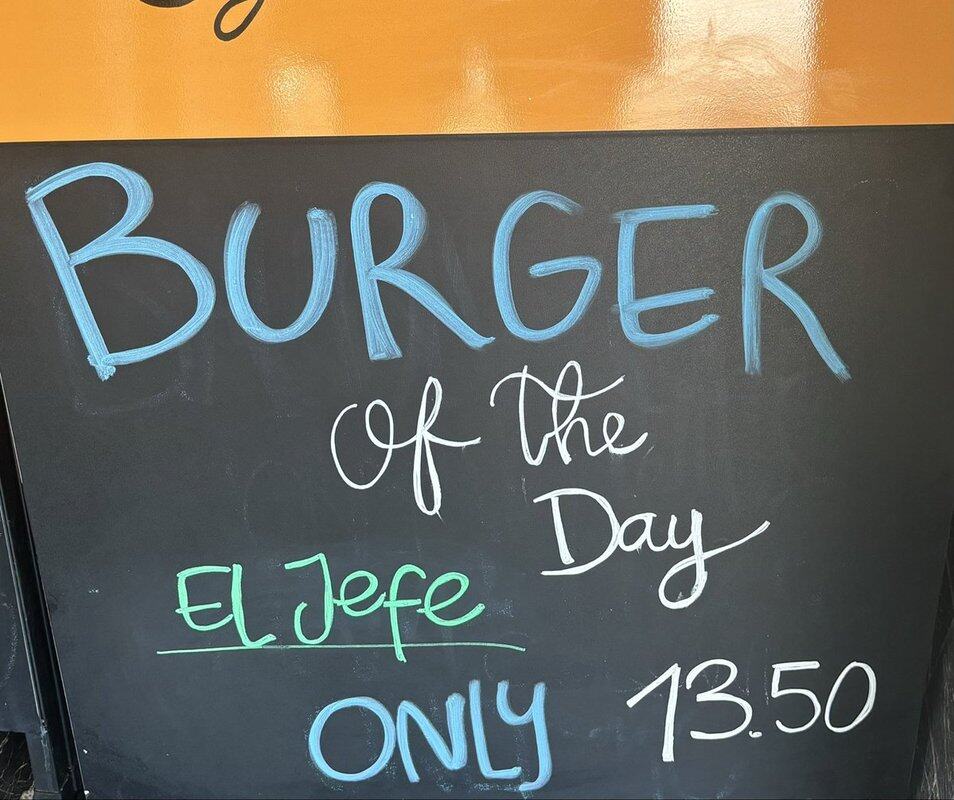 BURGER
Of The
Day
El Jefe
ONLY 13.50